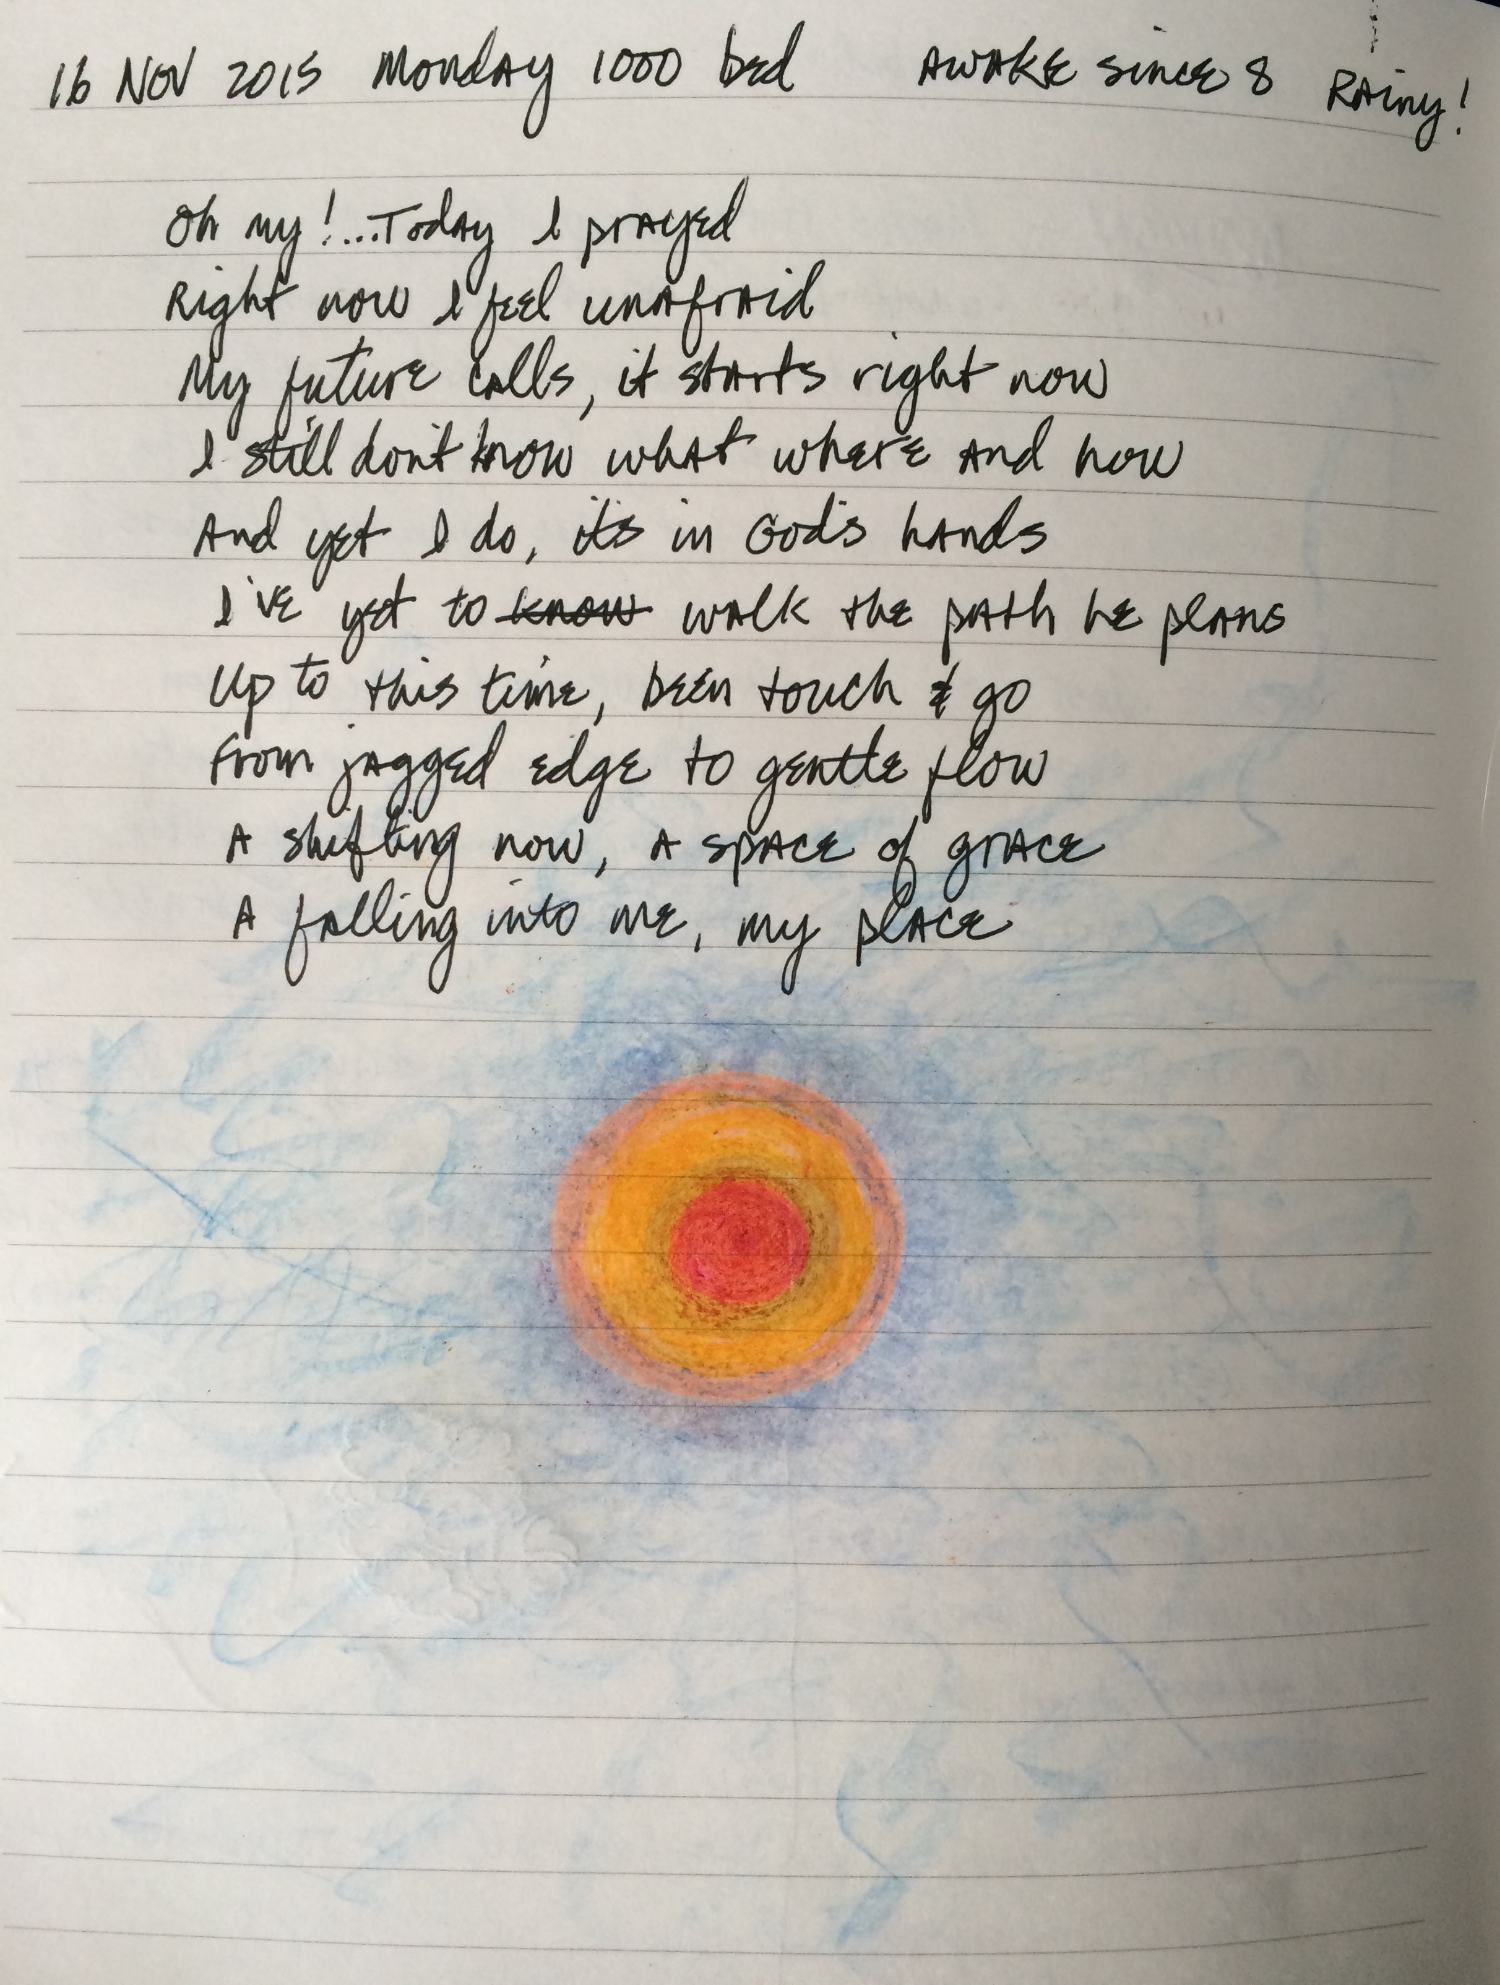 16 NOV 2015 Monday 1000 bed AWAKE since 8 RAiny!
Oh my!...Today I prayed
Right now I feel unafraid
My future calls, it starts right now
I still don't know what where and how
And yet I do, it's in God's hands
I've yet to know walk the path he plans
Up to this time, been touch & go
From jagged edge to gentle flow
A shifting now, a space of grace
A falling into me, my place